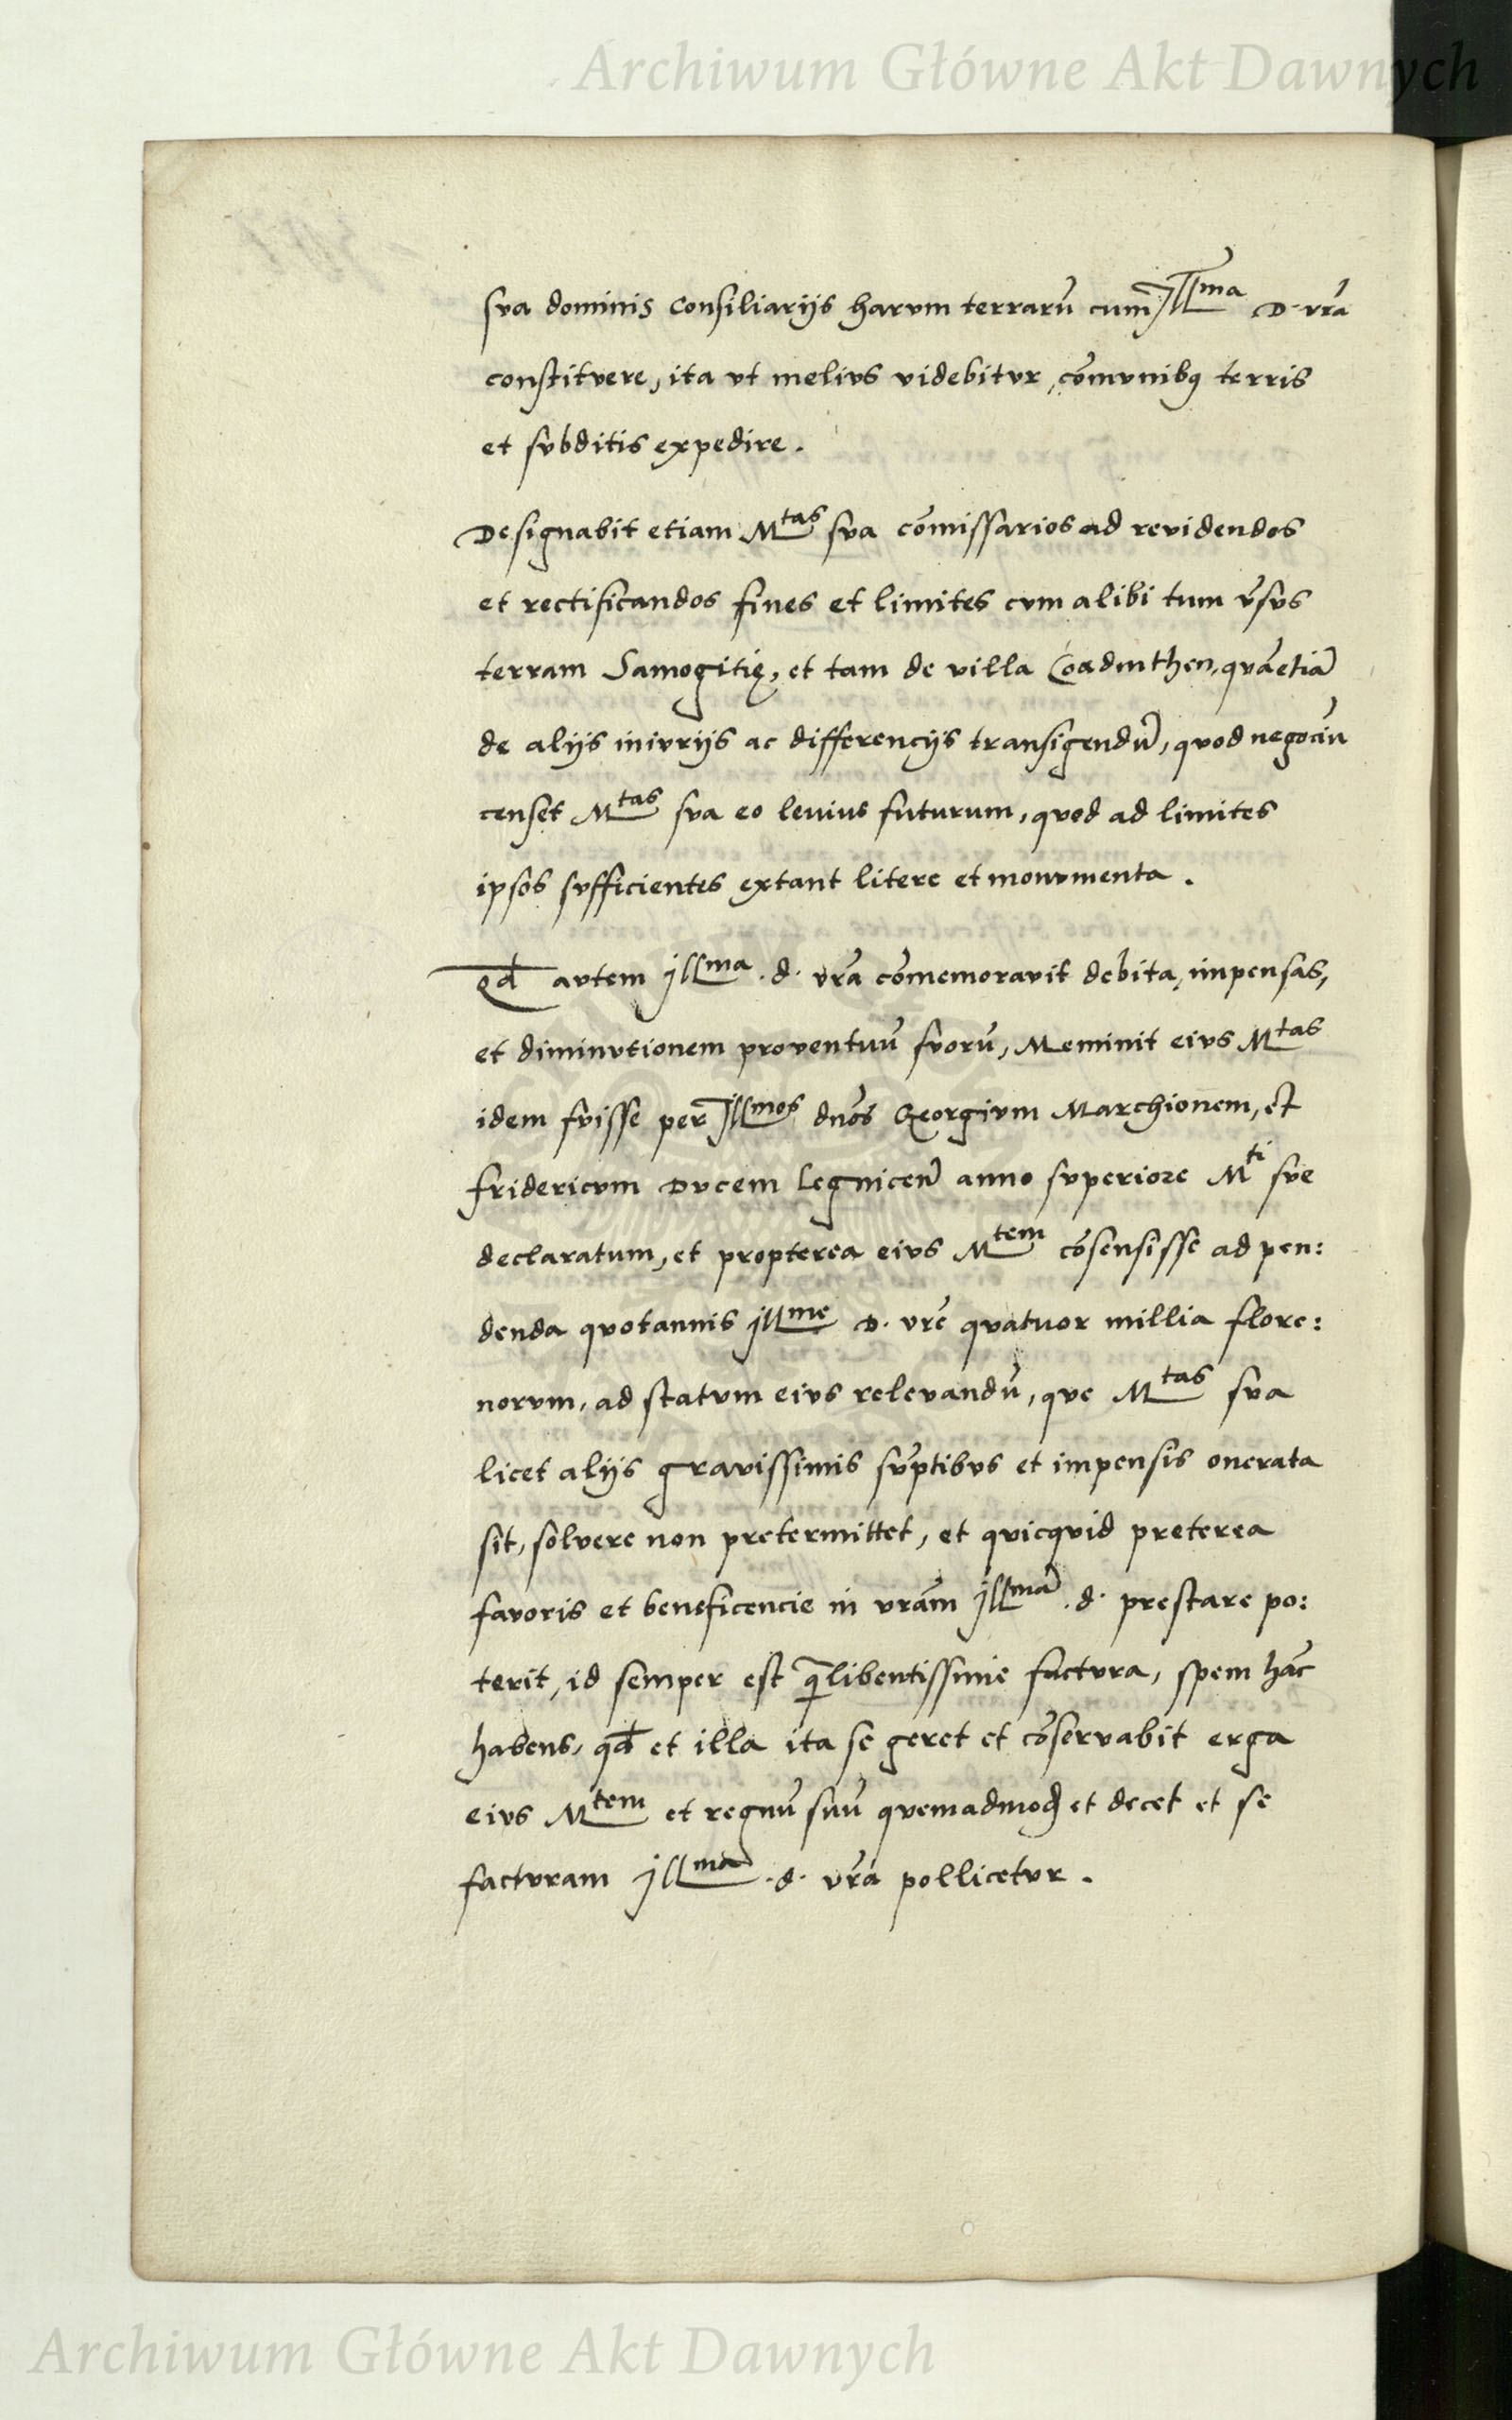 Archiwum Główne Akt Dawnych
sua dominis Consiliarijs harum terrarū cum Illma D. vrā
constituere, ita ut melius videbitur, cōmunibus terris
et subditis expedire.
Designabit etiam Mtas sua cōmissarios ad revidendos
et rectificandos fines et limites cum alibi tum v̄sus
terram Samogitię, et tam de villa Coadinthen, quā etiā
de alijs iniurijs ac differencijs transigendū, quod negociū
censet Mtas sua eo levius futurum, quod ad limites
ipsos sufficientes extant litere et monumenta.
Qd autem Illma .d. vrā cōmemoravit debita, impensas,
et diminutionem proventuū suorū, Meminit eius Mtas
idem fuisse per Illmos dnōs Georgium Marchionem, et
fridericum Ducem Legnicen̄ anno superiore Mti sue
declaratum, et propterea eius Mtem cōsensisse ad pen:
denda quotannis Illme D. vrē quatuor millia flore:
norum, ad statum eius relevandū, que Mtas sua
licet alijs gravissimis sūptibus et impensis onerata
sit, solvere non pretermittet, et quicquid preterea
favoris et beneficencie in vrām Illmā .d. prestare po:
terit, id semper est q̄libentissime factura, spem hāc
habens, qd et illa ita se geret et cōservabit erga
eius Mtem et regnū suū quemadmod et decet et se
facturam Illma .d. vrā pollicetur.
Archiwum Główne Akt Dawnych